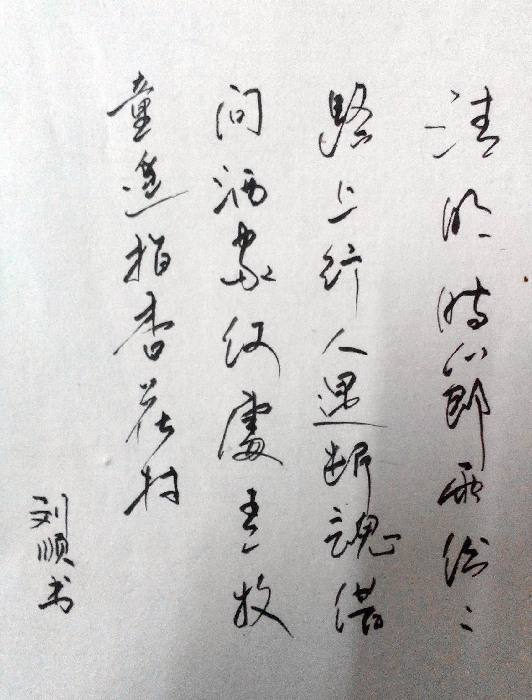 清明時節雨纷々
路上行人遇断魂借
问酒家何處有牧
童遥指杏花村
刘顺书